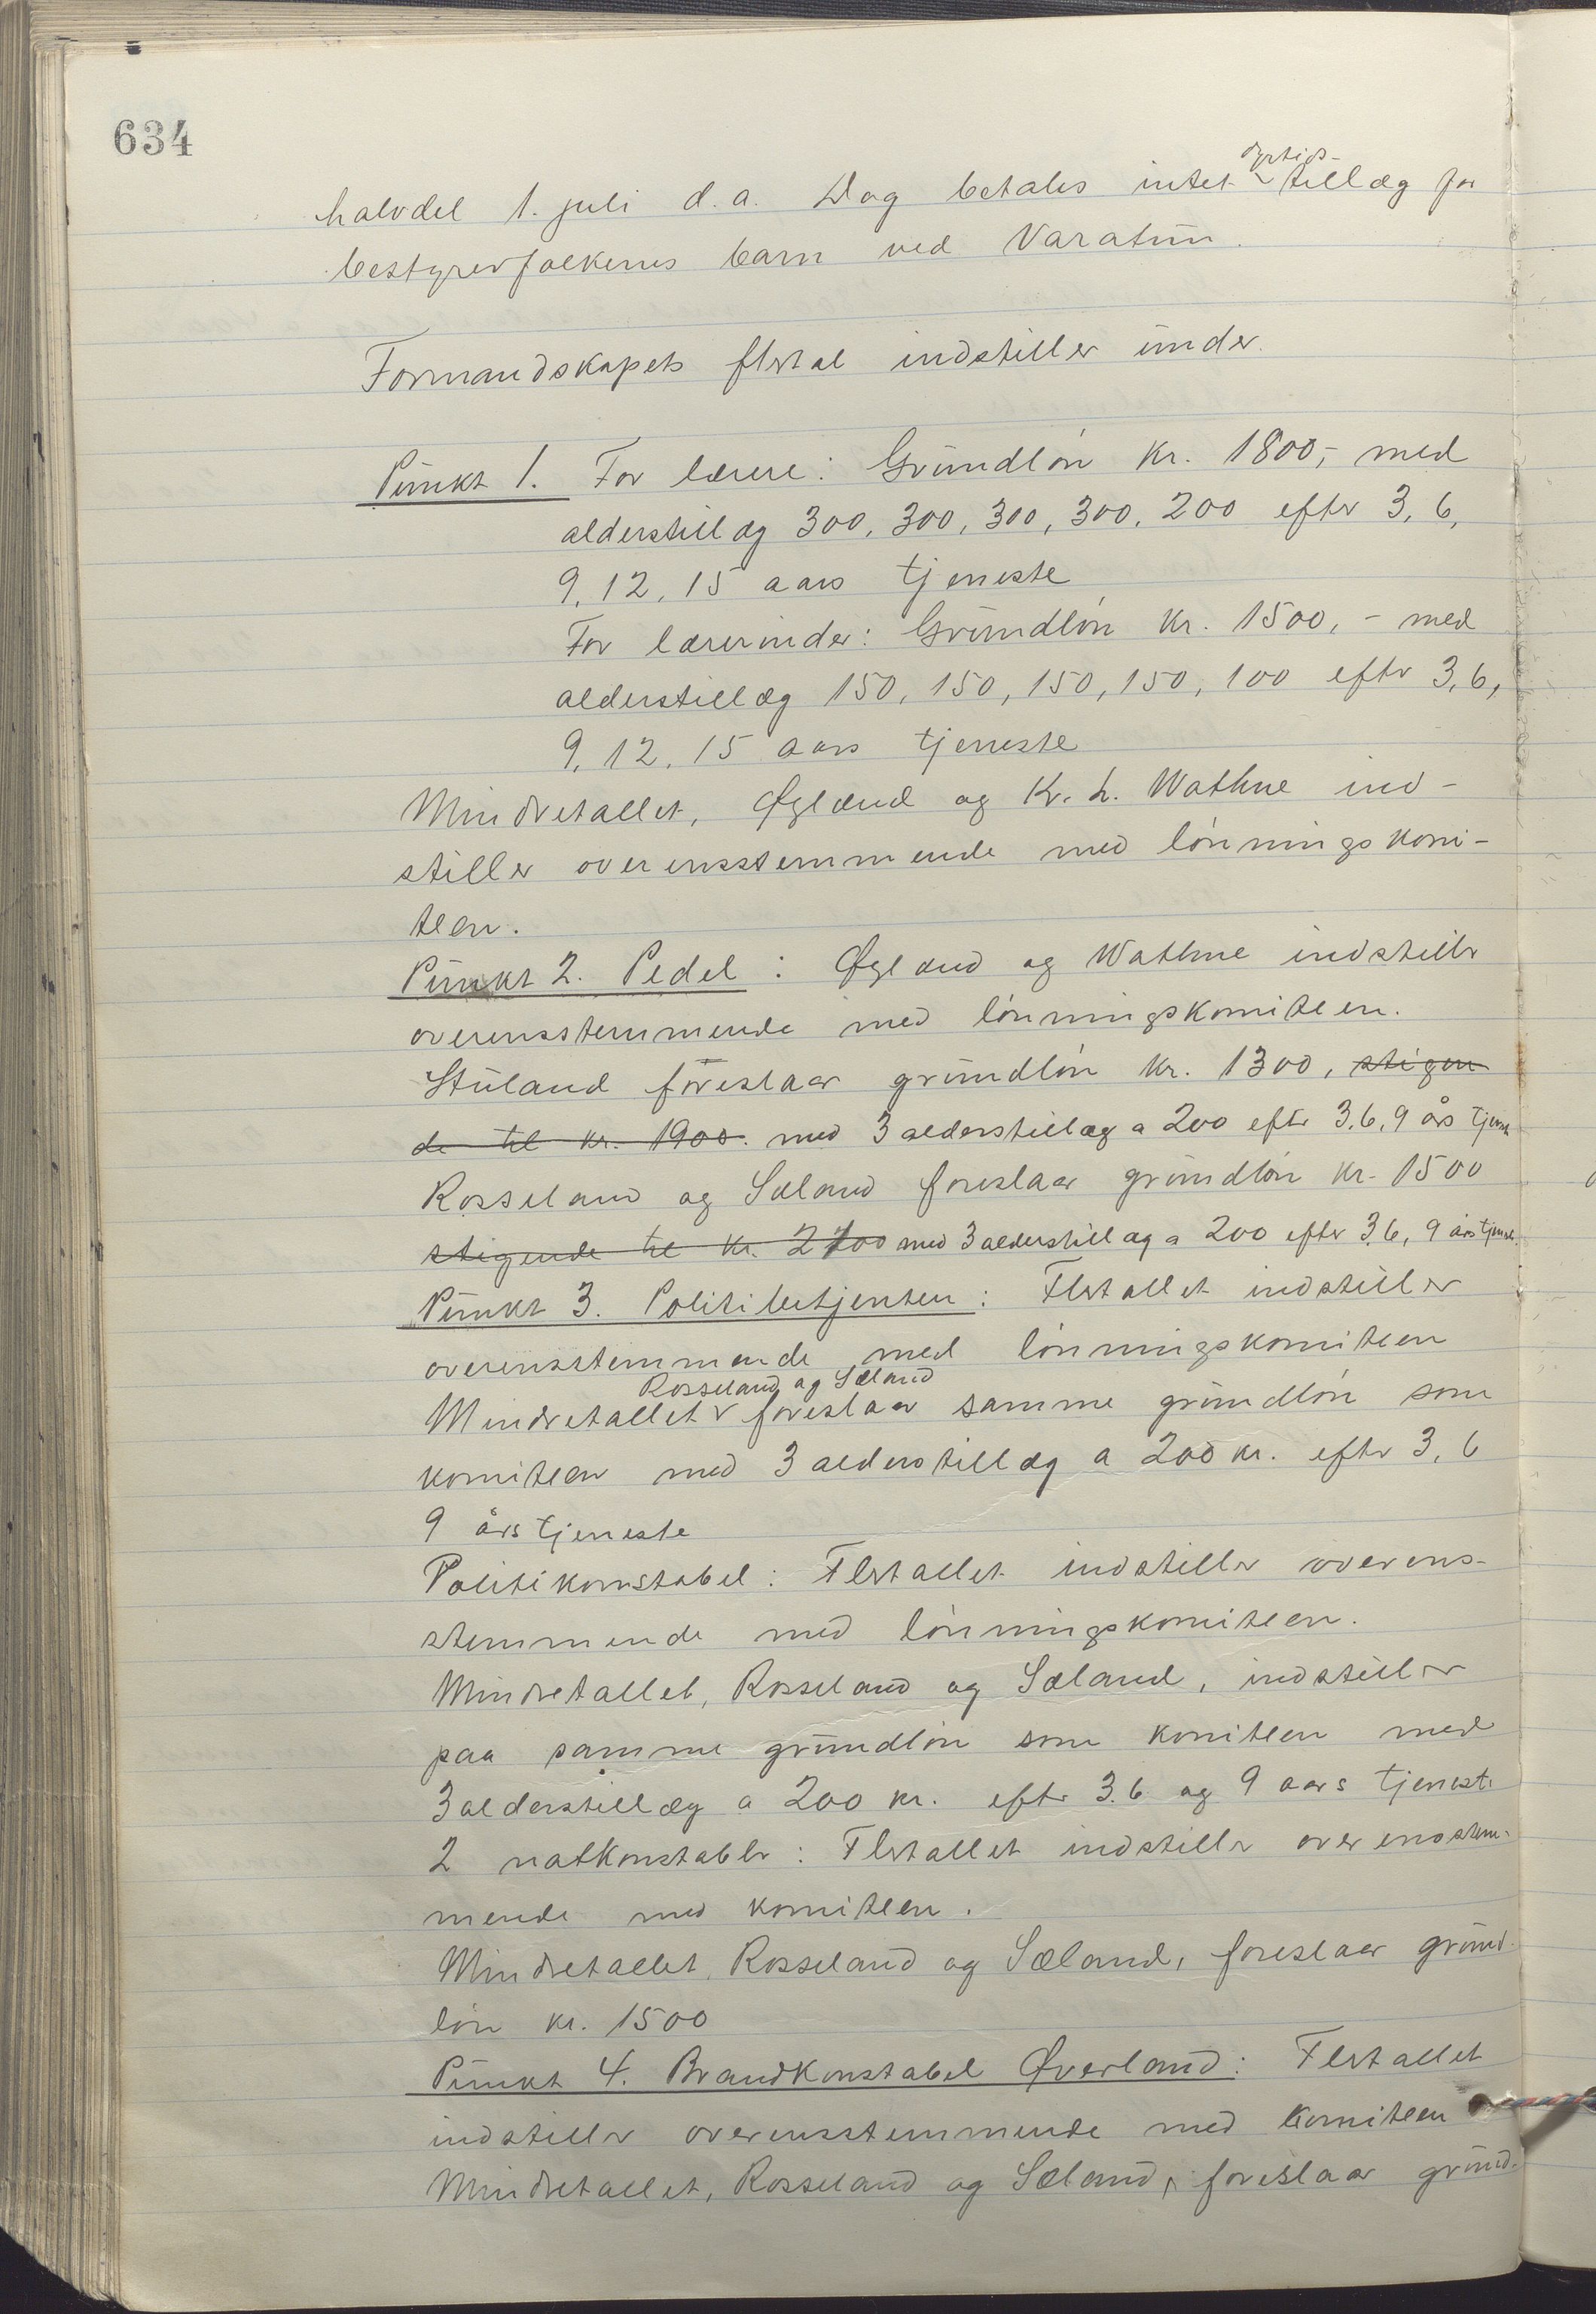 634
halvdel 1. juli d.a. Dog betales intet dyrtids-tillæg for
bestyrerfolkenes barn ved Varatun.
Formandskapets flertal indstiller under.
Punkt 1. For lærere: Grundløn kr. 1800,- med
alderstillæg 300, 300, 300, 300, 200 efter 3, 6,
9, 12, 15 aars tjeneste
For lærerinder: Grundløn kr. 1500,- med
alderstillæg 150, 150, 150, 150, 100 efter 3, 6,
9, 12, 15 aars tjeneste
Mindretallet, Øglænd og Kr. L. Wathne ind-
stiller overensstemmende med lønningskomi-
teen.
Punkt 2. Pedel: Øglænd og Wathne indstiller
overensstemmende med lønningskomiteen.
Stuland foreslaar grundløn kr. 1300, stigen
de til kr. 1900. med 3 alderstillæg a 200 efter 3, 6, 9 års tjenste
Rosseland og Sæland foreslaar grundløn kr. 1500
stigende til kr. 2100 med 3 alderstillæg a 200 efter 3, 6, 9 års tjenest.
Punkt 3. Politibetjenten: Flertallet indstiller
overensstemmende med lønningskomiteen
Rosseland og Sæland
Mindretallet foreslaar samme grundløn som
komiteen med 3 alderstillæg a 200 kr. efter 3, 6
9 års tjeneste
Politikonstabel: Flertallet indstiller overens-
stemmende med lønningskomiteen.
Mindretallet, Rosseland og Sæland, indstiller
paa samme grundløn som komiteen med
3 alderstillæg a 200 kr. efter 3. 6. og 9 aars tjeneste
2 natkonstabler: Flertallet indstiller overensstem-
mende med komiteen.
Mindretallet, Rosseland og Sæland, foreslaar grund-
løn kr. 1500
Punkt 4. Brandkonstabel Øverland: Flertallet
indstiller overensstemmende med komiteen
Mindretallet, Rosseland og Sæland, foreslaar grund-